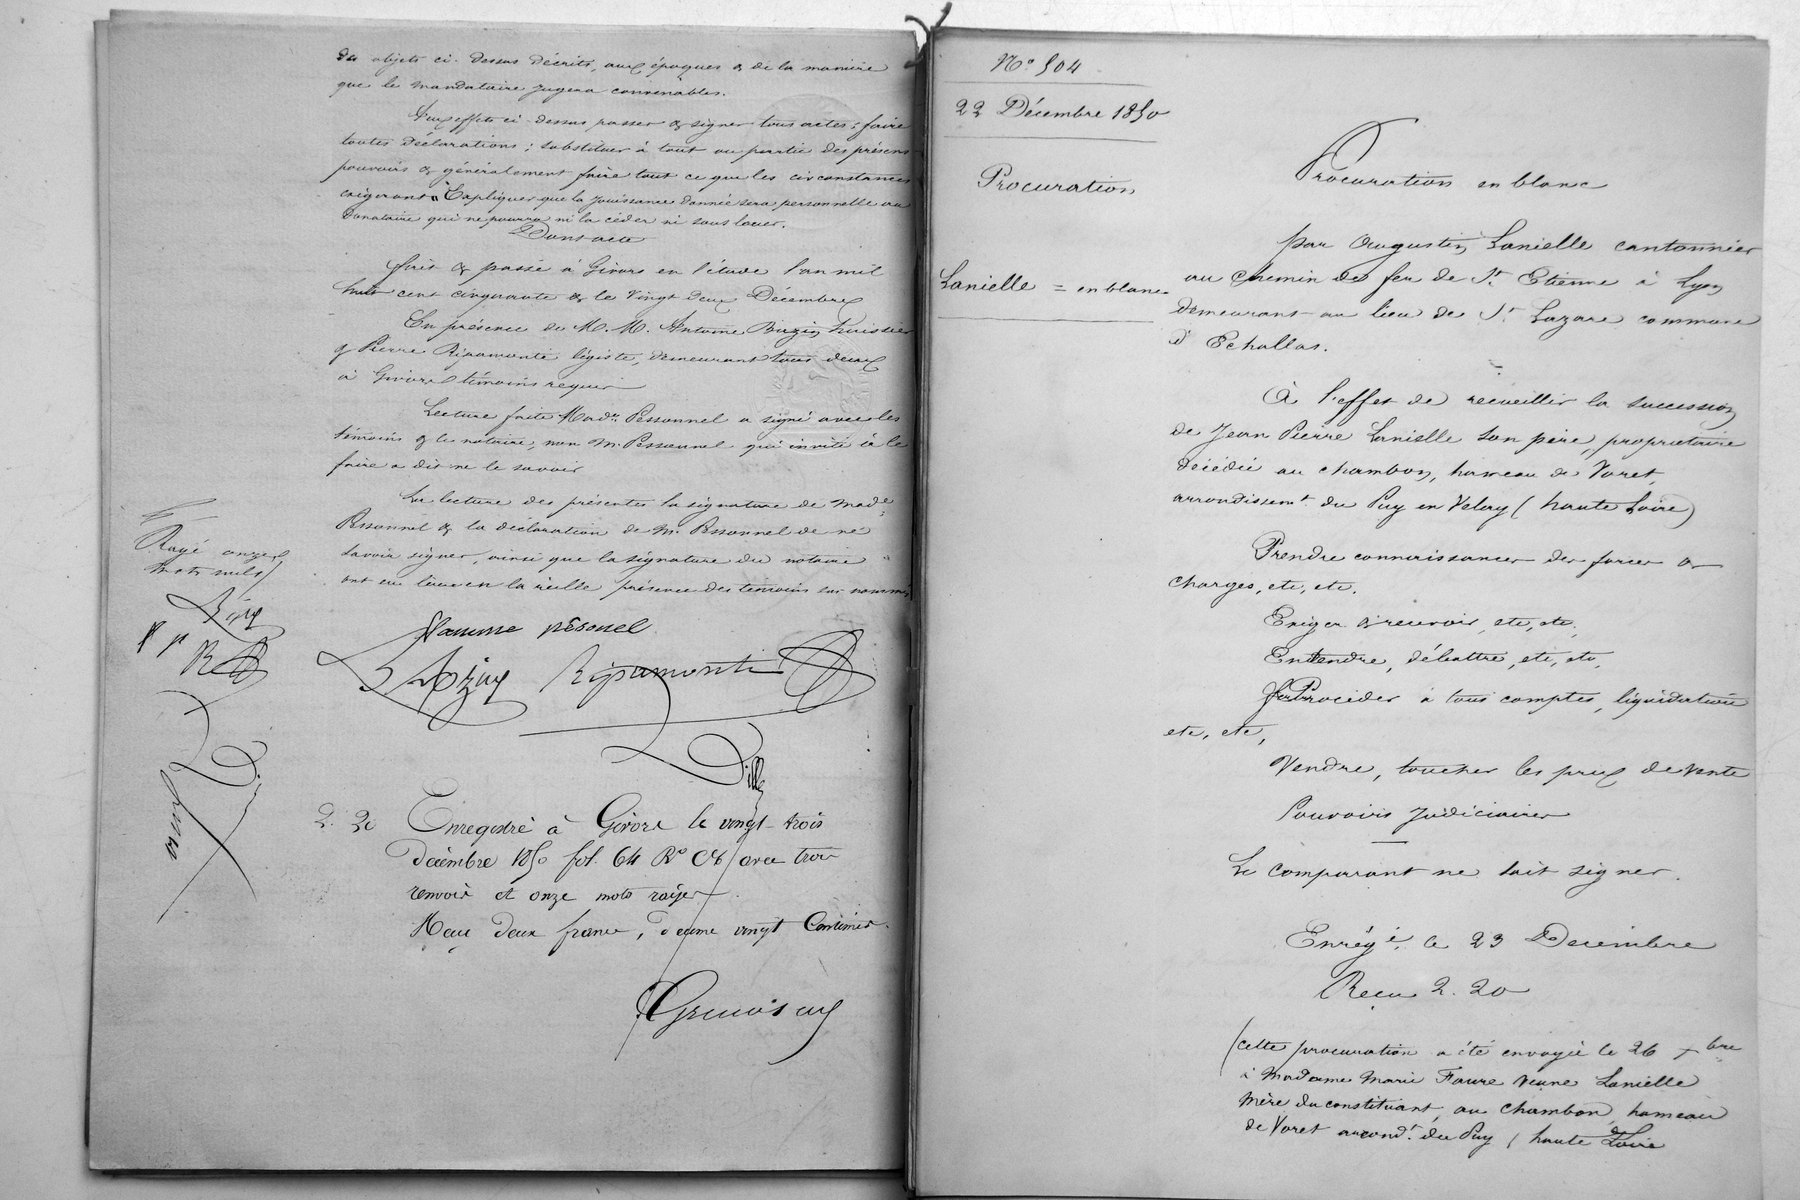 des objets ci-dessus décrits, aux époques & de la manière
que le mandataire jugera convenables.
Aux effets ci dessus passer & signer tous actes ; faire
toutes déclarations ; substituer à tout ou partie des présens
pouvoirs & généralement faire tout ce que les circonstances
exigeront. Expliquer que la jouissance donnée sera personnelle au
donataire qui ne pourra ni la céder ni sous louer.
Dont acte
fait & passé à Givors en l'étude l'an mil
huit cent cinquante & le vingt deux Décembre
En présence de M. M. Antoine huissier
& Pierre Ripamonti légiste, demeurant tous deux
à Givors témoins requis
Lecture faite Made Pessonnel a signé avec les
témoins & le notaire, non Mr Pessonnel qui invité à le
faire a dit ne le savoir
La lecture des présentes la signature de Made
Pessonnel & la déclaration de Mr Pessonnel de ne
savoir signer, ainsi que la signature du notaire
ont eu lieu en la réelle présence des témoins sus nommés
Rayé onze
mots nuls
femme pésonel
Ripamonti
2. 20 Enregistré à Givors le vingt-trois
Décembre 1850 fol. 64 Ro C8 avec trois
renvois et onze mots rayés
Reçu deux francs, décime vingt Centimes.
No 504
22 Décembre 1850
Procuration
Lanielle = en blanc
Procuration en blanc
par Augustin Lanielle cantonnier
au chemin de fer de St Etienne à Lyon
demeurant au lieu de St Lazare commune
d'Echallas.
À l'effet de recueillir la succession
de Jean Pierre Lanielle son père, propriétaire
décédé au chambon, hameau de Voret,
arrondissemt du Puy en Velay (haute Loire)
Prendre connaissance des forces &
charges, etc, etc.
Exiger & recevoir, etc, etc,
Entendre, débattre, etc, etc,
Procéder à tous comptes, liquidation
etc, etc,
Vendre, toucher les prix de vente
Pouvoirs judiciaires
Le comparant ne sait signer.
Enrégé le 23 Decembre
Recu 2. 20
(cette procuration a été envoyée le 26 xbre
à Madame Marie Faure veuve Lanielle
mère du constituant, au chambon, hameau
de Voret arrondt du Puy (haute Loire